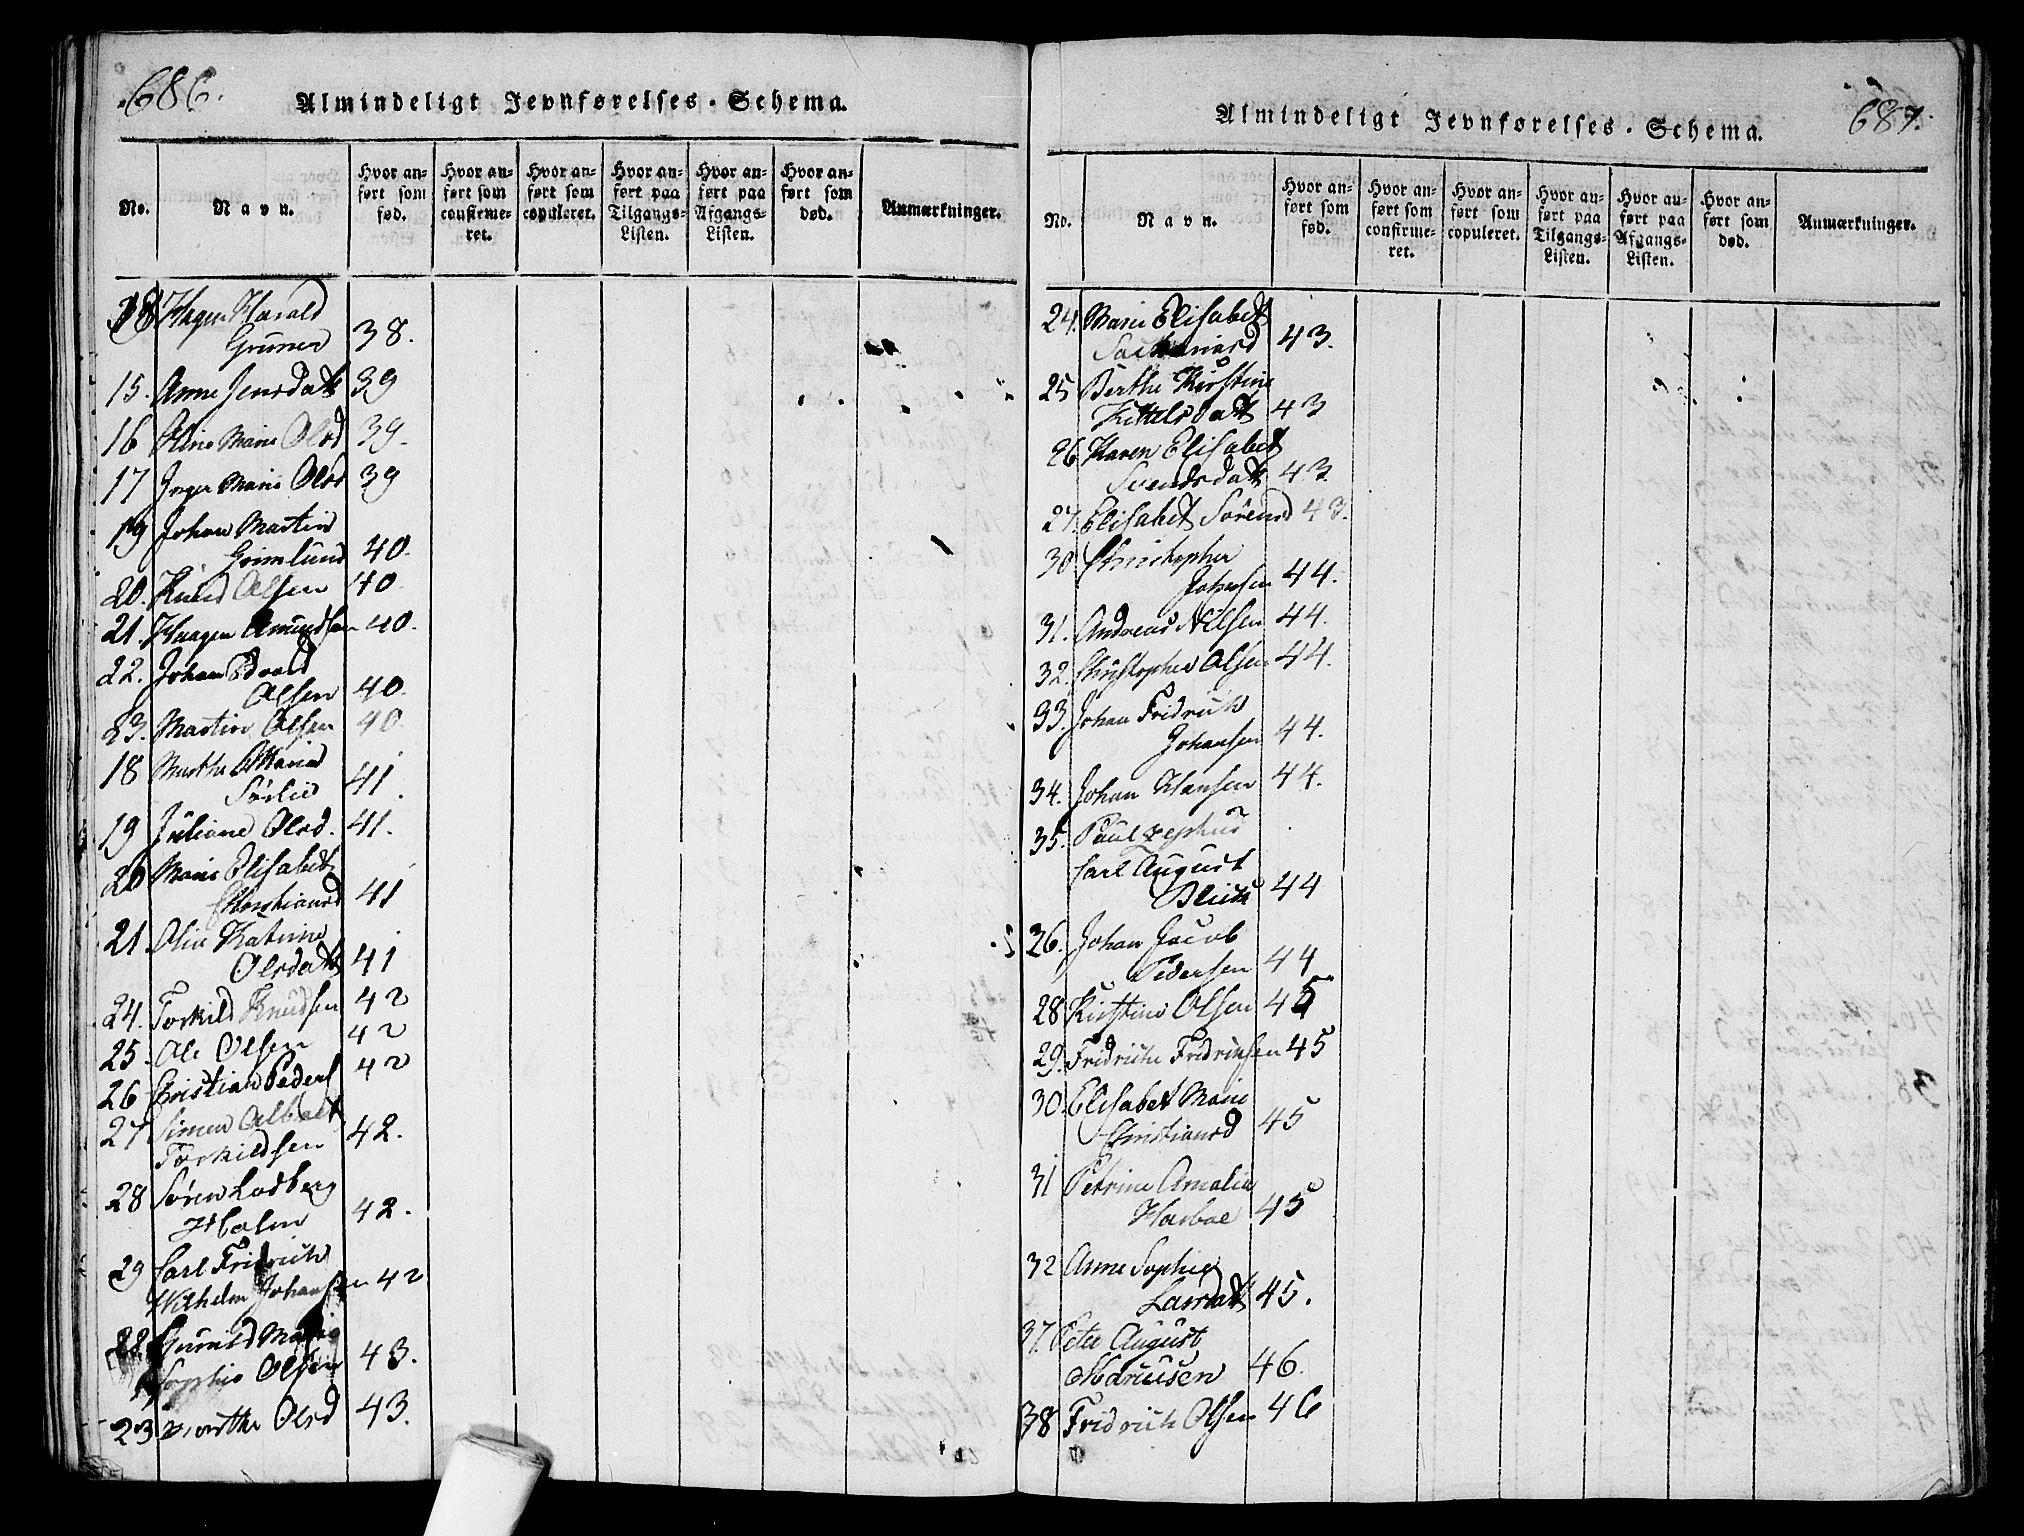 686.
Almindeligt Jevnførelses-Schema.
No. Navn. Hvor anført som fød. Hvor anført som confirmeret. Hvor anført som copuleret. Hvor anført paa Tilgangs-Listen. Hvor anført paa Afgangs-Listen. Hvor anført som død. Anmærkninger.
18 Hagen Harald
Gruner 38.
15. Anne Jensdatt 39
16 Oline Marie Olsd 39.
17 Inger Marie Olsd 39
19 Johan Martin
Grimlund 40.
20. Knud Olsen 40.
21. Haagen Amundsen 40.
22. Johan Edvard
Olsen 40.
23. Martin Olsen 40.
18 Marthe Maria
Sørlie 41.
19 Juliane Olsd. 41.
20 Marie Elisabet
Christiansd 41
21. Olia Katrine
Olsdatt 41
24. Torkild Knudsen 42
25. Ole Olsen 42
26 Christian Peders 42
27 Simen Albert
Torkildsen 42.
28 Søren Ludberg
Holm 42.
29 Carl Fridrich
Wilhelm Johansen 42
22 Gunild Marie
Sophie Olsen 43.
23 Berthe Olsd 43.
687.
Almindeligt Jevnførelses-Schema.
No. Navn. Hvor anført som fød. Hvor anført som confirmeret. Hvor anført som copuleret. Hvor anført paa Tilgangs-Listen. Hvor anført paa Afgangs-Listen. Hvor anført som død. Anmærkninger.
24. Marie Elisabet
43.
25 Berthe Kirstine
Kittelsdatt 43
26 Karen Elisabet
Svendsdatt 43.
27. Elisabet Sørensd 43.
30 Christopher
Johnsen 44.
31. Andreas Nilsen 44.
32. Christopher Olsen 44.
33. Johan Fridrich
Johansen 44.
34. Johan Hansen 44.
35. Paul Zephus
Carl August
Blich 44
26. Johan Jacob
Pedersen 44
28 Kirstine Olsen 45
29. Fridriche Fridrichsen 45
30. Elisabet Marie
Christiansd 45
31 Petrine Amalia
Harboe 45
32 Anne Sophie
Larsdatt 45.
37. Peter August
Mariusen 46.
38 Fridrich Olsen 46